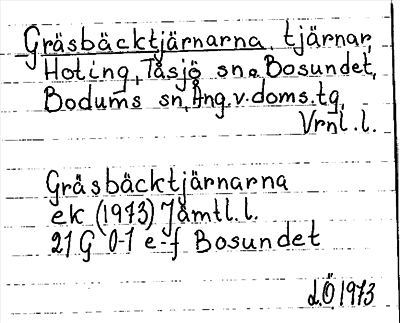 Gräsbäcktjärnarna, tjärnar,
Hoting, Tåsjö sn o. Bosundet,
Bodums sn, Ång. v. doms. tg,
Vrnl. l.
Gräsbäcktjärnarna
ek (1973) Jämtl. l.
21 G 0-1 e-f Bosundet
d.Ö 1973